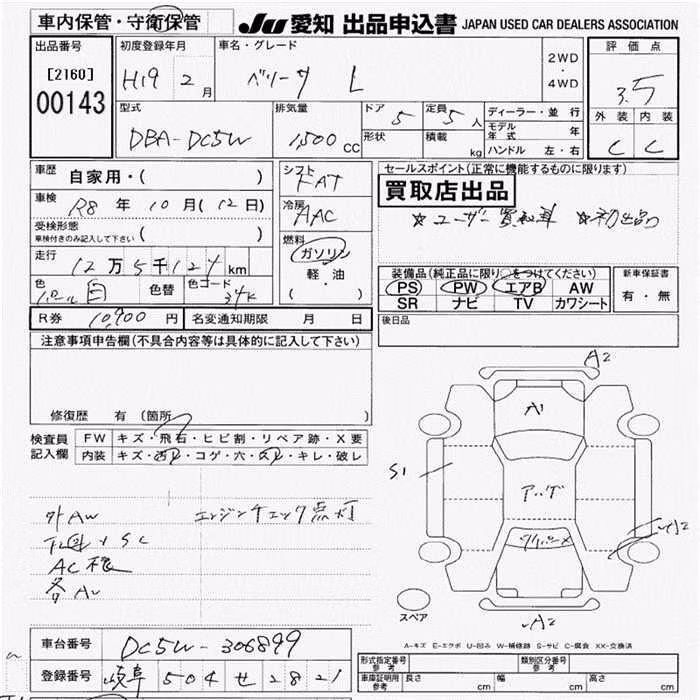 車内保管・守衛保管
JU 愛知 出品申込書 JAPAN USED CAR DEALERS ASSOCIATION
出品番号
[2160]
00143
初度登録年月
H19 2月
車名・グレード
ベリーサ L
2WD
・
4WD
評価点
3.5
外装 内装
C C
型式
DBA-DC5W
排気量
1,500 CC
ドア 5
定員 5人
形状
積載 kg
ディーラー・並行
モデル年式 年
ハンドル 左・右
車歴 自家用・( )
車検 R8年10月(12日)
受検形態
車検付きのみ記入して下さい ( )
走行 12万5千127km
色 パール白 色替 色コード 34K
シフト FAT
冷房 AAC
燃料
ガソリン
軽・油
( ・ )
セールスポイント(正常に機能するものに限ります)
買取店出品
☆ユーザー買取車 ☆初出品
装備品(純正品に限り○をつけてください)
PS PW エアB AW
SR ナビ TV カワシート
新車保証書
有・無
R券 10,700円 名変通知期限 月 日
後日品
注意事項申告欄(不具合内容等は具体的に記入して下さい)
修復歴 有(箇所 )
検査員記入欄
FW キズ・飛石・ヒビ割・リペア跡・X要
内装 キズ・汚れ・コゲ・穴・スレ・キレ・破レ
外AW エンジンチェック点灯
下回りSC
各AU
A2
A1
S1
アハゲ
ワイパーX
A2
A2
スペア
A-キズ E-エクボ U-凹み W-補修跡 S-サビ C-腐食 XX-交換済
車台番号 DC5W-306899
登録番号 岐阜 504 せ 2821
形式指定番号 参考
類別区分番号 参考
車庫証明用 参考 長さ cm 幅 cm 高さ cm